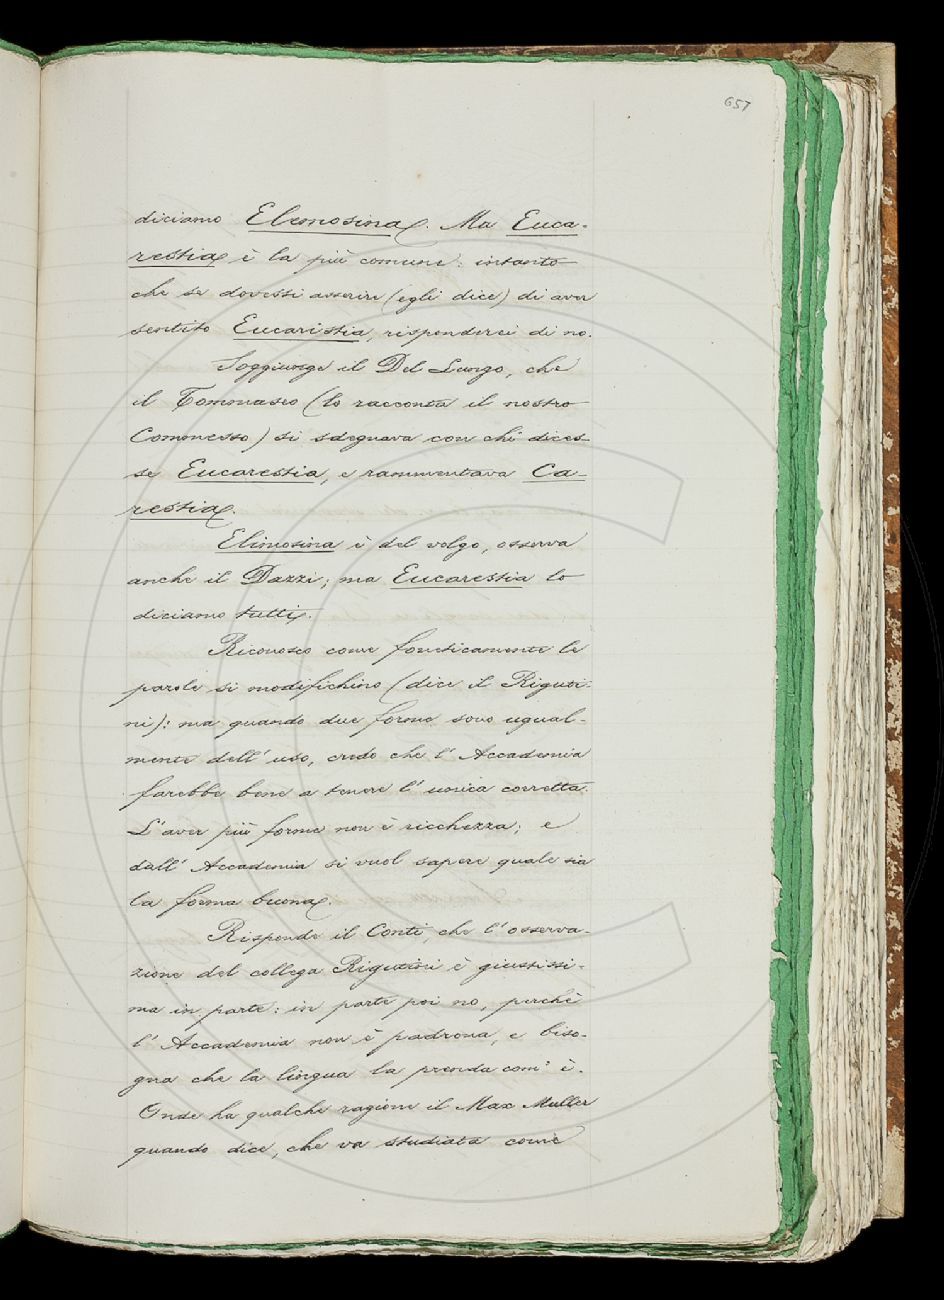 657
diciamo Elemosina. Ma Euca-
restia è la più comune: intanto
che se dovessi asserire (egli dice) di aver
sentito Eucaristia, risponderei di no.
Soggiunge il Del Lungo, che
il Tommaseo (lo racconta il nostro
Commesso) si sdegnava con chi dices-
se Eucarestia, e rammentava Ca-
restia.
Elimosina è del volgo, osserva
anche il Dazzi; ma Eucarestia lo
diciamo tutti.
Riconosco come foneticamente le
parole si modifichino (dice il Riguti-
ni): ma quando due forme sono ugual-
mente dell' uso, credo che l' Accademia
farebbe bene a tenere l' unica corretta.
L'aver più forme non è ricchezza; e
dall' Accademia si vuol sapere quale sia
la forma buona.
Risponde il Conti, che l'osserva-
zione del collega Rigutini è giustissi-
ma in parte: in parte poi no, perchè
l' Accademia non è padrona, e biso-
gna che la lingua la prenda com' è.
Onde ha qualche ragione il Max Muller
quando dice, che va studiata come